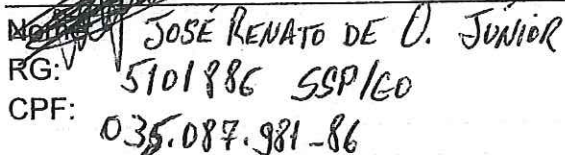 Nome: JOSÉ RENATO DE O. JUNIOR
RG: 5101886 SSP/GO
CPF: 035.087.981-86